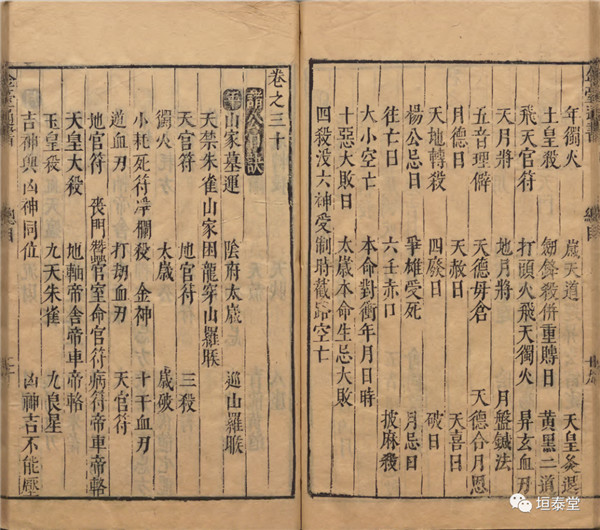 年獨火 歲天道 天皇灸退
土皇殺 劍鋒殺併重賻日 黃黑二道
飛天官符 打頭火飛天獨火 昇玄血刃
天月將 地月將 月盤鍼法
五音理僻 天德毋倉 天德合月恩
月德日 天赦日 天喜日
天地轉殺 四廢日 破日
楊公忌日 爭雄受死 月忌日
往亡日 六壬赤口 披麻殺
大小空亡 本命對衝年月日時
十惡大敗日 太歲本命生忌大敗
四殺没六神受制時截路空亡
總目
卷之三十
諸訣
年 山家墓運 陰府太歲 巡山羅睺
天禁朱雀山家困龍穿山羅睺
天官符 地官符 三殺
獨火 太歲 歲破
小耗死符淨欄殺 金神 十干血刃
遊血刃 打刼血刃 天官符
地官符 喪門官室命官符病符帝車帝輅
天皇大殺 地軸帝舍帝車帝輅
玉皇殺 九天朱雀 九良星
吉神與凶神同位 凶神吉不能壓
總目
垣泰堂